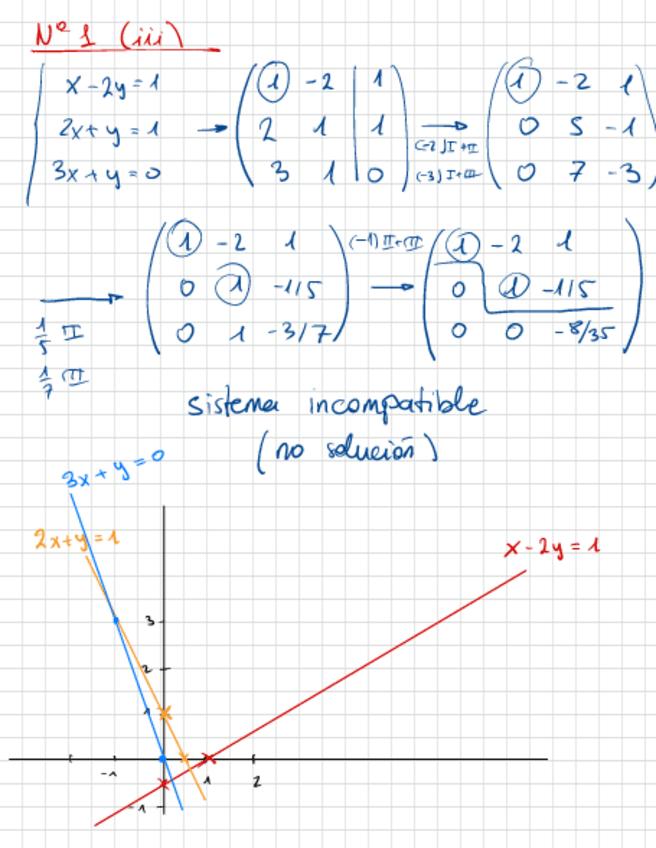 Nº 1 (iii)
x - 2y = 1
2x + y = 1
3x + y = 0
→
1 -2 | 1
2 1 | 1
3 1 | 0
→
(-2) I + II
(-3) I + III
1 -2 1
0 5 -1
0 7 -3
→
1/5 II
1/7 III
1 -2 1
0 1 -1/5
0 1 -3/7
(-1) II + III
→
1 -2 1
0 1 -1/5
0 0 -8/35
sistema incompatible
(no solución)
3x + y = 0
2x + y = 1
x - 2y = 1
3
2
1
-1
1
2
-1